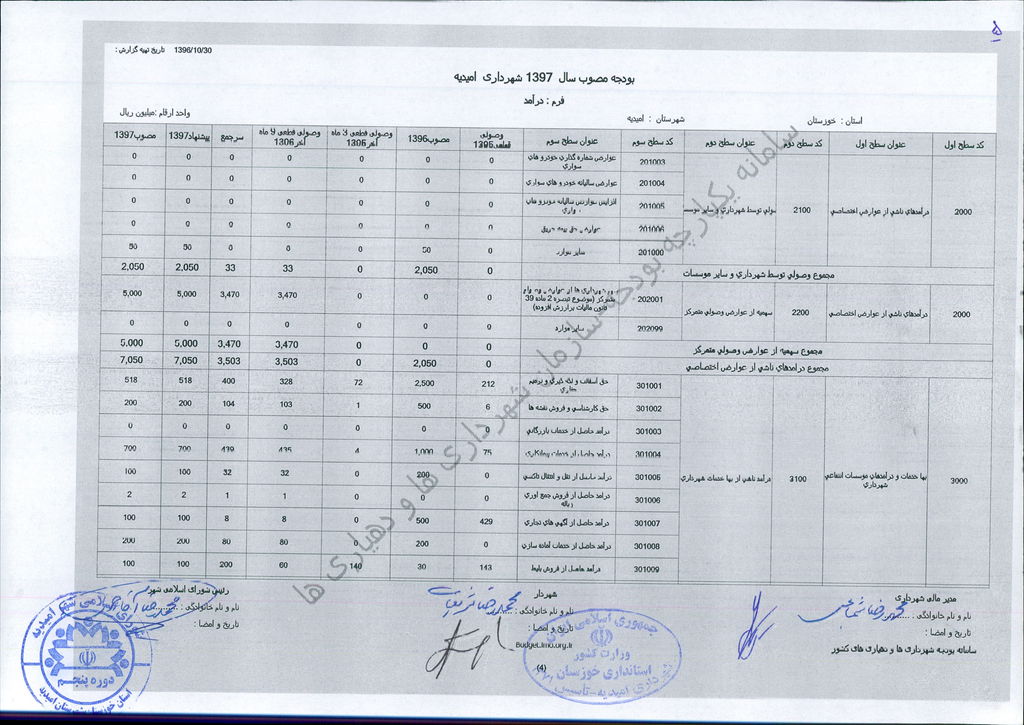 ۵
تاریخ تهیه گزارش : 1396/10/30
بودجه مصوب سال 1397 شهرداری امیدیه
فرم : درآمد
استان : خوزستان شهرستان : امیدیه واحد ارقام :میلیون ریال
کد سطح اول عنوان سطح اول کد سطح دوم عنوان سطح دوم کد سطح سوم عنوان سطح سوم وصولی قطعی 1395 مصوب1396 وصولی قطعی 3 ماه آخر 1395 وصولی قطعی 9 ماه آخر 1396 سرجمع پیشنهاد1397 مصوب1397
2000 درآمدهای ناشی از عوارض اختصاصی 2100 وصولی توسط شهرداری و سایر موسسات
201003 عوارض شماره گذاری خودرو های سواری 0 0 0 0 0 0 0
201004 عوارض سالیانه خودرو های سواری 0 0 0 0 0 0 0
201005 افزایش عوارض سالیانه خودرو های سواری 0 0 0 0 0 0 0
201006 عوارض حق بیمه حریق 0 0 0 0 0 0 0
سایر موارد 0 50 0 0 0 50 50
مجموع وصولی توسط شهرداری و سایر موسسات 0 2,050 0 33 33 2,050 2,050
2000 درآمدهای ناشی از عوارض اختصاصی 2200 سهمیه از عوارض وصولی متمرکز
202001 سهم شهرداری ها از عوارض وصولی متمرکز (موضوع تبصره 2 ماده 39 قانون مالیات برارزش افزوده) 0 0 0 3,470 3,470 5,000 5,000
202099 سایر موارد 0 0 0 0 0 0 0
مجموع سهمیه از عوارض وصولی متمرکز 0 0 0 3,470 3,470 5,000 5,000
مجموع درآمدهای ناشی از عوارض اختصاصی 0 2,050 0 3,503 3,503 7,050 7,050
3000 بها خدمات و درآمدهای موسسات انتفاعی شهرداری 3100 درآمد ناشی از بها خدمات شهرداری
301001 حق آسفالت و لکه گیری و ترمیم حفاری 212 2,500 72 328 400 518 518
301002 حق کارشناسی و فروش نقشه ها 6 500 1 103 104 200 200
301003 درآمد حاصل از خدمات بازرگانی 0 0 0 0 0 0 0
301004 درآمد حاصل از خدمات پیمانکاری 75 1,000 4 435 439 700 700
301005 درآمد حاصل از نقل و انتقال تاکسی 0 200 0 32 32 100 100
301006 درآمد حاصل از فروش جمع آوری زباله 0 0 0 1 1 2 2
301007 درآمد حاصل از آگهی های تجاری 429 500 0 8 8 100 100
301008 درآمد حاصل از خدمات آماده سازی 0 200 0 80 80 200 200
301009 درآمد حاصل از فروش بلیط 143 30 140 60 200 100 100
سامانه یکپارچه بودجه سازمان شهرداری ها و دهیاری ها
مدیر مالی شهرداری شهردار رئیس شورای اسلامی شهر
نام و نام خانوادگی : نام و نام خانوادگی : نام و نام خانوادگی :
تاریخ و امضا : تاریخ و امضا : تاریخ و امضا :
سامانه بودجه شهرداری ها و دهیاری های کشور
Budget.Imo.org.ir
(4)
جمهوری اسلامی ایران
وزارت کشور
استانداری خوزستان
شهرداری امیدیه-تأسیس
شورای اسلامی شهر امیدیه
دوره پنجم
استان خوزستان شهرستان امیدیه